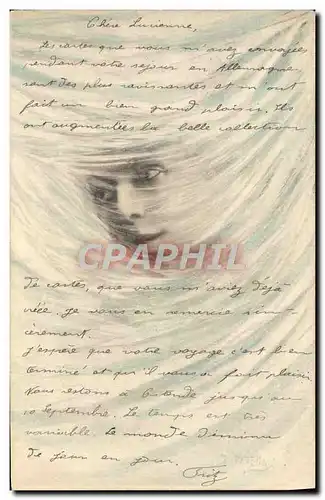 Chère Lucienne,
Les cartes que vous m'avez envoyées
pendant votre séjour en Allemagne,
sont des plus ravissantes et m'ont
fait un bien grand plaisir. Ils
ont augmentées la belle collection
CPAPHIL
de cartes, que vous m'aviez déjà
créée. Je vous en remercie sin-
cèrement.
J'espère que votre voyage s'est bien
terminé et qu'il vous a fait plaisir.
Nous restons à Ostende jusqu'au
10 Septembre. Le temps est très
variable. Le monde diminue
de jour en jour.
Fritz